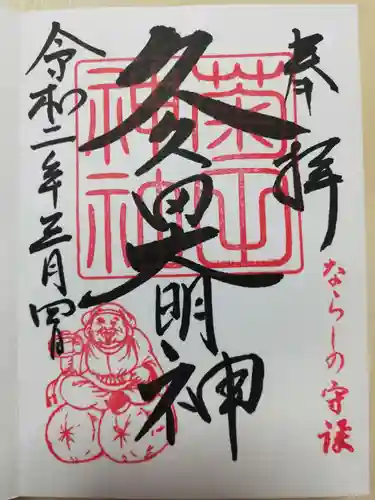 奉拝
ならしの守護
久々田大明神
菊田
神社
令和二年三月四日